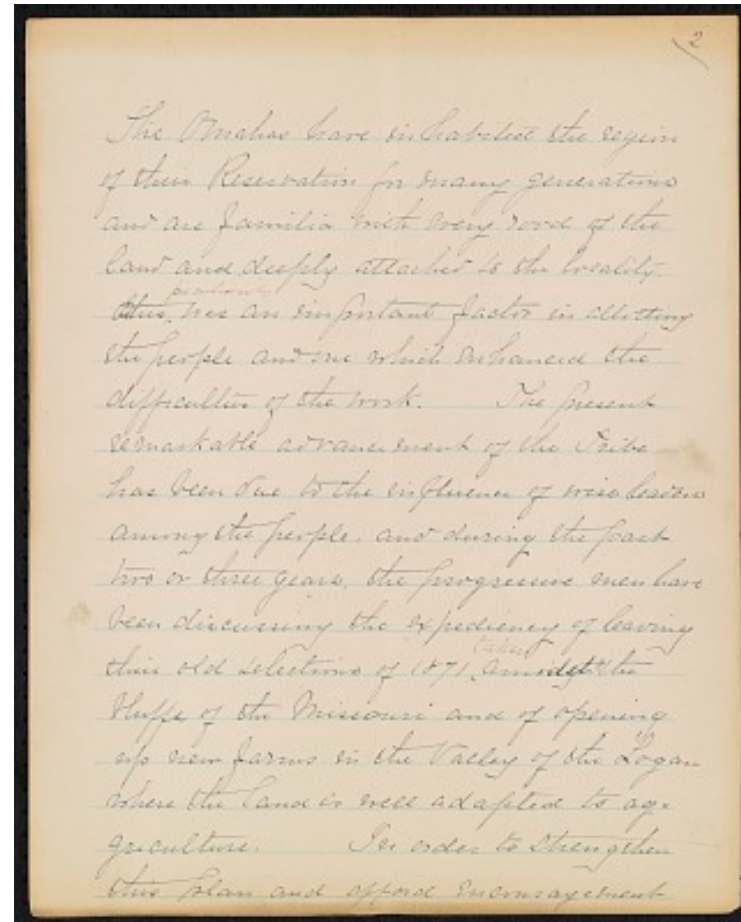 2
The Omahas have inhabited the region
of their Reservation for many generations
and are familia with every rood of the
land and deeply attached to the locality.
this was an important factor in allotting
the people and one which enhanced the
difficulties of the work. The present
remarkable advancement of the Tribe
has been due to the influence of wise leaders
among the people. and during the past
two or three years, the progressive men have
been discussing the expediency of leaving
taken
their old selections of 1871, amidst the
bluffs of the Missouri and of opening
up new farms in the Valley of the Logan
where the land is well adapted to ag-
griculture. In order to strengthen
this plan and afford encouragement